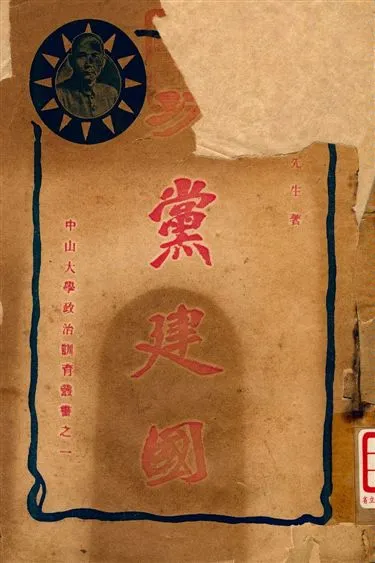 先生著
黨建國
中山大學政治訓育叢書之一
省立